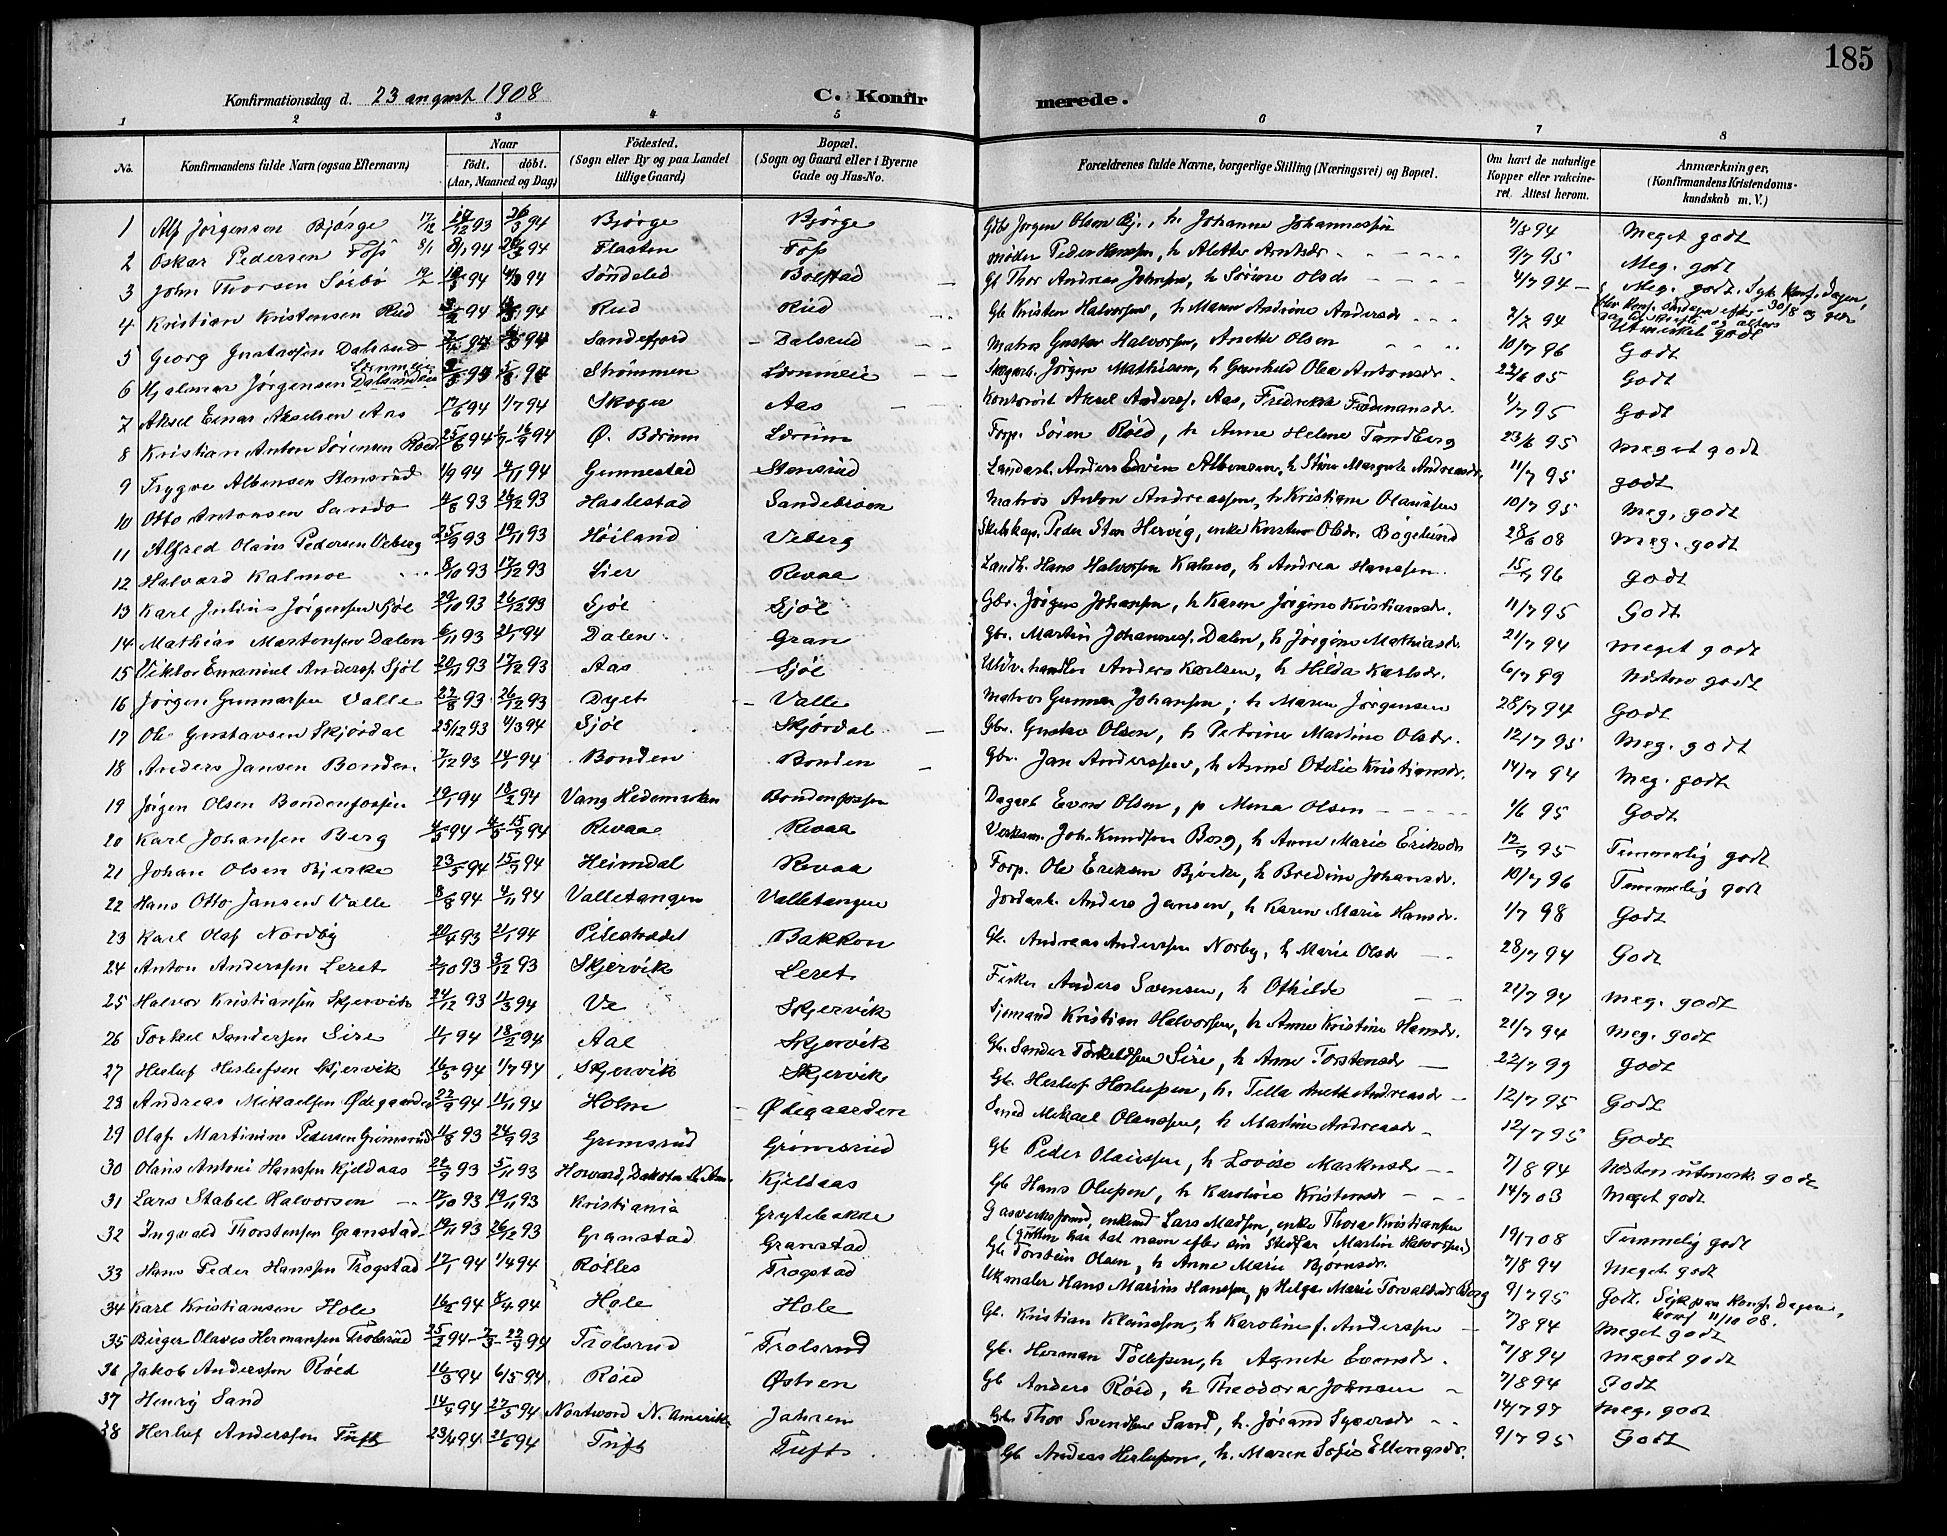 185
Konfirmationsdag d. 23 august 1908 C. Konfirmerede.
1 2 3 4 5 6 7 8
No. Konfirmandens fulde Navn (ogsaa Efternavn) Naar født. døbt. (Aar, Maaned og Dag) Fødested. (Sogn eller By og paa Landet tillige Gaard) Bopæl. (Sogn og Gaard eller i Byerne Gade og Hus-No. Forældrenes fulde Navne, borgerlige Stilling (Næringsvei) og Bopæl. Om havt de naturlige Kopper eller vakcineret. Attest herom. Anmærkninger, (Konfirmandens Kristendomskundskab m. V.)
1 Alf Jörgensen Bjørge 17/12 93 26/3 94 Bjørge Bjørge Gbr Jørgen Olsen Bj., h. Johanne Johannessen 7/8 94 Meget godt
2 Oskar Pedersen Foss 8/1 94 94 Flaaten Foss Peder Hanssen, h Alette 9/7 95 Meg. godt
3 John Thorsen Søibø 94 94 Søndeled Bolstad Gb Thor Andreas Johnsen, h Sørine Olsdr 4/7 94 Meg. godt. Syk Konf. dagen,
4 Kristian Kristensen Rød 94 94 Rød Rød Gb Kristen Halvorsen, h Maren Andrine Andersdr 7/7 94 Utmerket godt
5 Georg Gustavsen Dalsrud 94 94 Sandefjord Dalsrud Matros Gustav Halvorsen, Anette Olsen 10/7 96 Godt
6 Hjalmar Jörgensen 94 Strømmen Lønmeie Jörgen Mathisen, h Gunhild Olea Antonsdr. 22/6 05 Godt
7 Aksel Einar Akselsen Aas 17/6 94 1/7 94 Skoger Aas Kontorist Aksel Anderss. Aas, Fredrikke 4/7 95 Godt
8 Kristian Anton Sörensen Röed 25/6 94 16/9 94 Ø. Bærum Lørum Forp. Sören Röed, h Anne Helene Tandberg 23/6 95 Meget godt
9 Trygve Albensen Stensrud 1/9 94 4/11 94 Gunnestad Stensrud Landarb. Anders Albensen, h Margrete Andreasdr. 11/7 95 godt
10 Otto Antonsen Sando 4/8 93 26/12 93 Haslestad Sandebroen Matros Anton Andreassen, h Kristiane Olaussen 10/7 95 Meg. godt
11 Alfred Olaus Pedersen Veberg 25/9 93 19/11 93 Høiland Veberg Peder Sten Hervig, enke Olsdr. Bøgelund 28/6 08 Meg. godt
12 Halvard Kalmoe 8/10 93 17/12 93 Lier Revaa Landh. Hans Halvorsen Kalmo, h Andrea Hanssen 15/7 96 godt
13 Karl Julius Jörgensen Sjöl 29/10 93 26/12 93 Sjöl Sjöl Gbr. Jørgen Johansen, h Karen Jørgine Kristiansdr. 11/7 95 Godt
14 Mathias Martensen Dalen 6/11 93 21/1 94 Dalen Gran Gbr. Martin Johanness. Dalen, h Jørgine Mathiasdr. 21/7 94 Meget godt
15 Viktor Emanuel Anderss Sjöl 20/11 93 17/12 93 Aas Sjöl Anders Karlsen, h Hilda Karlsdr. 6/7 99 Nesten godt
16 Jörgen Gunnarsen Valle 22/8 93 26/12 93 Dyet Valle Matros Gunnar Johansen, h Maren Jørgensen 28/7 94 Godt
17 Ole Gustavsen Skjørdal 25/12 93 4/3 94 Sjöl Skjørdal Gbr. Gustav Olsen, h Petrine Martine Olsdr. 12/7 95 Meg. godt
18 Anders Jansen Bonden 7/12 93 14/1 94 Bonden Bonden Gbr. Jan Anderssen, h Anne Otelie Kristiansdr. 14/7 94 Meg. godt
19 Jørgen Olsen Bondenfossen 19/1 94 18/2 94 Vang Hedemarken Bondenfossen Dagarb Even Olsen, p Mina Olsen 1/6 95 Godt
20 Karl Johansen Berg 4/3 94 15/9 94 Revaa Revaa Joh. Knudsen Berg, h Anne Marie Eriksdr 12/7 95 Temmelig godt
21 Johan Olsen Bjerke 23/5 94 15/7 94 Heimdal Revaa Forp. Ole Eriksen Bjerke, h Bredine Johansdr. 10/7 96 Temmelig godt
22 Hans Otto Jansen Valle 8/8 94 4/11 94 Valletangen Valletangen Jordarb. Anders Jansen, h Karen Marie Hansdr. 1/7 98 Godt
23 Karl Olaf Nordby 20/4 93 21/1 94 Pilestrædet Bakken Gb. Andreas Anderssen Norby, h Marie Olsdr 28/7 94 Godt
24 Anton Anderssen Leret 2/10 93 3/12 93 Skjervik Leret Fisker Anders Sørensen, h Othilde 21/7 94 Meg. godt
25 Halvor Kristiansen Skjervik 24/12 93 11/3 94 Ve Skjervik Sjømand Kristian Halvorsen, h Anne Kristine Hansdr. 21/7 94 Meg. godt
26 Torkel Sandersen Sire 11/1 94 18/2 94 Aal Skjervik Gb. Sander Torkeldsen Sire, h Anne Torstensdr 22/7 99 Godt
27 Herluf Herlufsen Skjervik 16/5 94 1/7 94 Skjervik Skjervik Gb. Herluf Herlufsen, h. Tilla Anette Andreasdr 12/7 95 Godt
28 Andreas Mikaelsen Ødegaarden 22/9 94 11/11 94 Holm Ødegaarden Smed Mikael Olaussen, h Martine Andreasdr 12/7 95 Godt
29 Olaf Martinius Pedersen Grimsrud 11/8 93 24/9 93 Grimsrud Grimsrud Gb Peder Olaussen, h Lovise Markusdr 7/8 94 Nesten utmerk. godt
30 Olaus Antoni Hanssen Kjeldaas 24/9 93 5/11 93 Howard, Dakota N. Am. Kjeldaas Gb Hans Olsen, h Karoline Kristensdr 14/7 03 Meget godt
31 Lars Stabel Halvorsen 17/10 93 19/11 93 Kristiania Grytebakke Lars Madsen, enke Thora Kristiansen (Gutten har tat navn efter sin Stedfar Martin Halvorsen) 19/7 08 Temmelig godt
32 Ingvald Thorstensen Granstad 19/11 93 26/12 93 Granstad Granstad Gb. Torstein Olsen, h Anne Marie Bjørnsdr. 7/8 94 Meget godt
33 Hans Peder Hanssen Trogstad 17/1 94 1/4 94 Rölles Trogstad Hans Marius Hanssen, p Helga Marie Torvaldsdr Berg 9/7 95 Godt. Syk paa Konf. dagen, konf 11/10 08.
34 Karl Kristiansen Hole 16/2 94 8/4 94 Hole Hole Gb. Kristian Klausen, h Karoline f. Anderssen 7/8 94 Meget godt
35 Birger Olaves Hermansen Trolsrud 25/2 94 94 Trolsrud Trolsrud Gb. Herman Tollefsen, h Agnete Evensdr. 7/8 94 Meget godt
36 Jakob Anderssen Röed 16/3 94 6/5 94 Röed Østren Gb Anders Röed, h Theodora Johnsen 7/8 94 Godt
37 Henry Sand 14/4 94 27/5 94 Nortwood N. Amerika Jahren Gb. Thor Svendsen Sand, h. Jørand Syversdr 14/7 97 Meg. godt
38 Herluf Anderssen Tuft 23/4 94 21/6 94 Tuft Tuft Gb Andreas Herlufsen, h. Maren Sofie Ellingsdr. 9/7 95 Godt